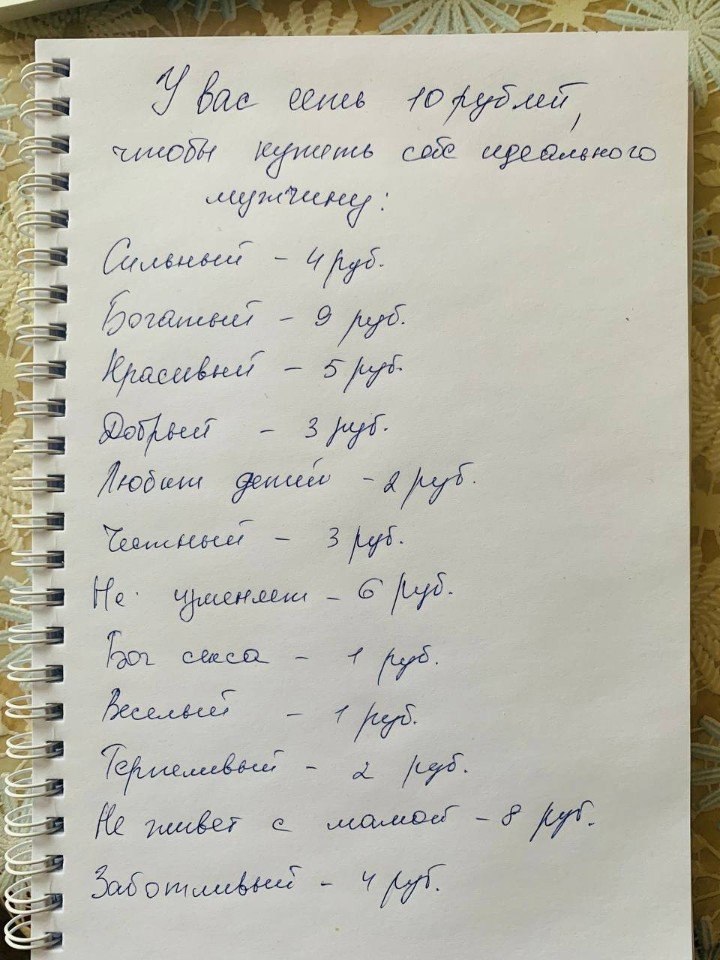 У вас есть 10 рублей,
чтобы купить себе идеального
мужчину:
Сильный - 4 руб.
Богатый - 9 руб.
Красивый - 5 руб.
Добрый - 3 руб.
Любит детей - 2 руб.
Честный - 3 руб.
Не изменяет - 6 руб.
Бог секса - 1 руб.
Веселый - 1 руб.
Терпеливый - 2 руб.
Не живет с мамой - 8 руб.
Заботливый - 4 руб.